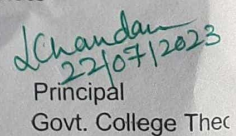 LChandan
22/07/2023
Principal
Govt. College Theo